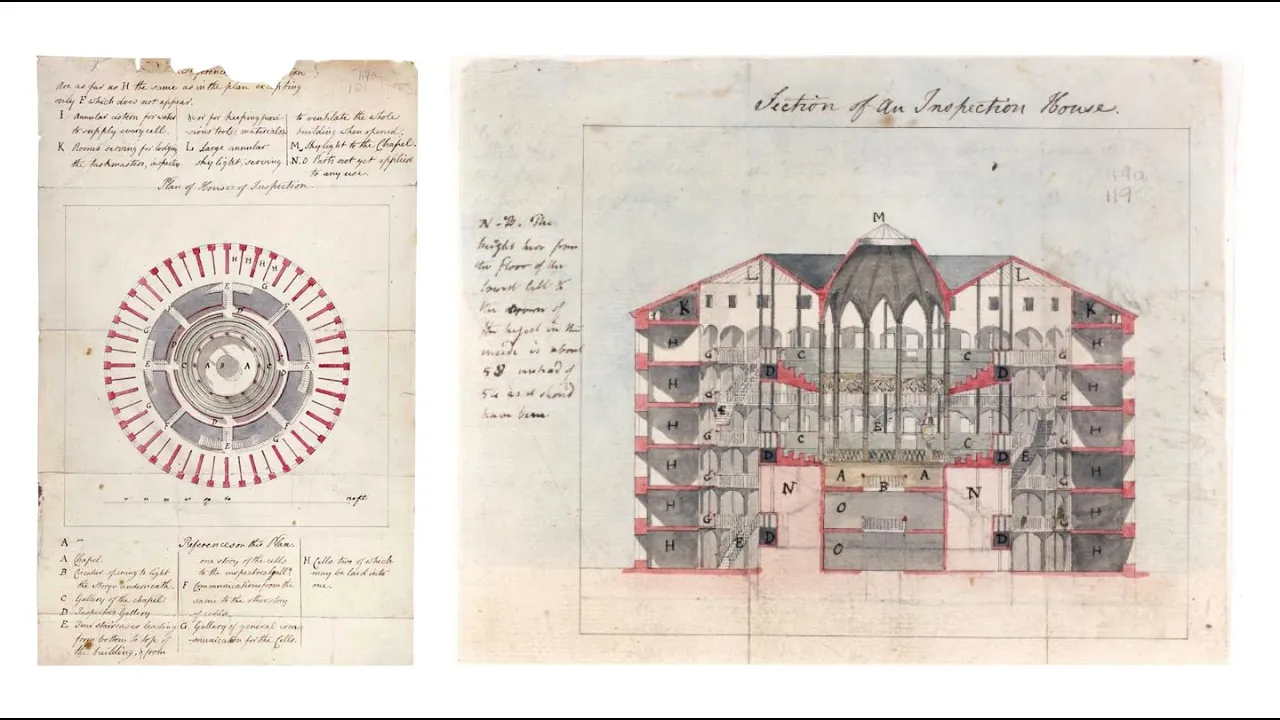 are as far as H the same as in the plan excepting
only F which does not appear.
I Annular cistern for water
to supply every cell.
K Rooms serving for lodging
the taskmasters,
L Large annular
sky light, serving
to ventilate the whole
building when opened.
M Skylight to the Chapel.
N.O Parts not yet applied
to any use.
Plan of House of Inspection.
H H H H
E G
A B A C
References on this Plan.
A
A Chapel.
B Circular opening to light
the Story underneath.
C Gallery of the chapel
D Inspectors Gallery
E Four staircases leading
from bottom to top of
the building, & from
one story of the cells
to the inspectors gall.y
F Communications from the
same to the other story
of cells.
G Gallery of general com
munication for the Cells.
H Cells two of which
may be laid into
one.
Section of an Inspection House.
119a
119
N.B. The
height here from
the floor of the
lowest Cell to
the crown of
the highest in the
inside is about
58 instead of
54 as it should
have been.
M
L L
K K
H G C C G H
D D
H G G H
E
H G C E C G H
D D E
H A B A G H
N N
H G O H
E D D
H O H